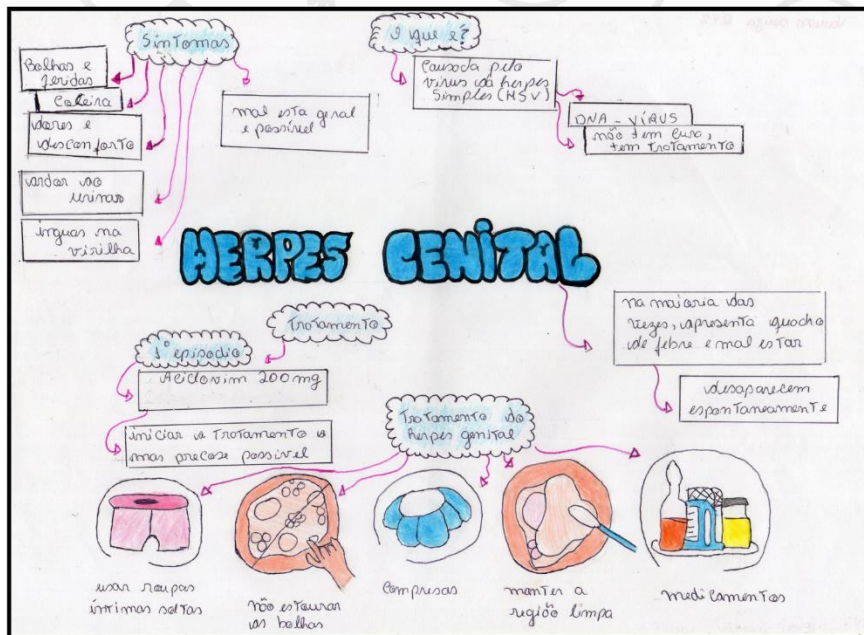 Sintomas
Bolhas e
feridas
Coceira
dores e
desconforto
ardor ao
urinar
ínguas na
virilha
mal esta geral
e possível
O que é?
Causada pelo
vírus da herpes
Simples (HSV)
DNA - VÍRUS
não tem cura,
tem tratamento
HERPES GENITAL
na maioria das
vezes, apresenta quacho
de febre e mal estar
desaparecem
espontaneamente
Tratamento
1º episodio
Aciclovim 200mg
iniciar o tratamento o
mas precose possível
Tratamento do
herpes genital
usar roupas
íntimas soltas
não estourar
as bolhas
Compresas
manter a
região limpa
medicamentos